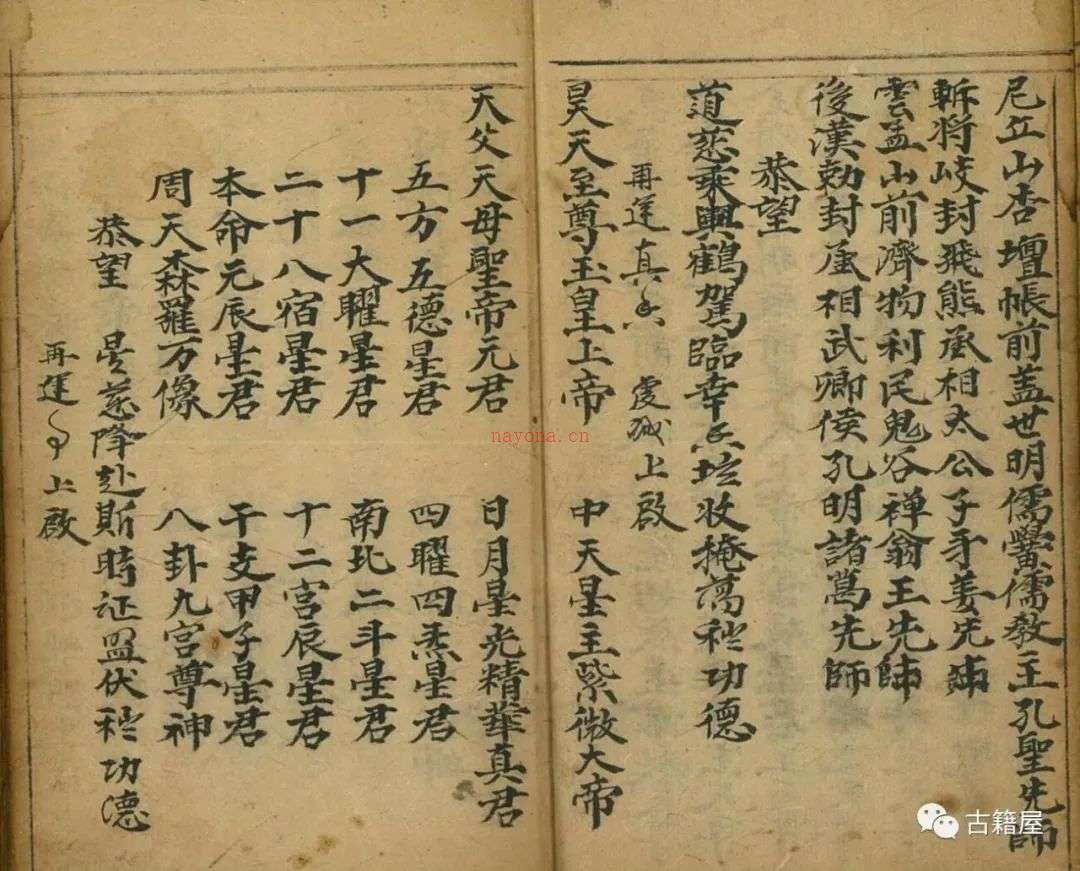 尼丘山杏壇帳前盖世明儒黌儒教主孔聖先師
斬将岐封飛熊丞相太公子牙姜先師
雲孟山前濟物利民鬼谷禅翁王先師
後漢勅封丞相武卿侯孔明諸葛先師
恭望
道慈乗輿鶴駕臨幸壇收掩功德
再運真香虔誠上啟
昊天至尊玉皇上帝 中天星主紫微大帝
天父天母聖帝元君 日月星光精華真君
五方五德星君 四曜四炁星君
十一大曜星君 南北二斗星君
二十八宿星君 十二宫辰星君
本命元辰星君 干支甲子星君
周天森羅万像 八卦九宫尊神
恭望 慈降赴斯時证盟伏功德
再運上啟
nayona.cn
古籍屋